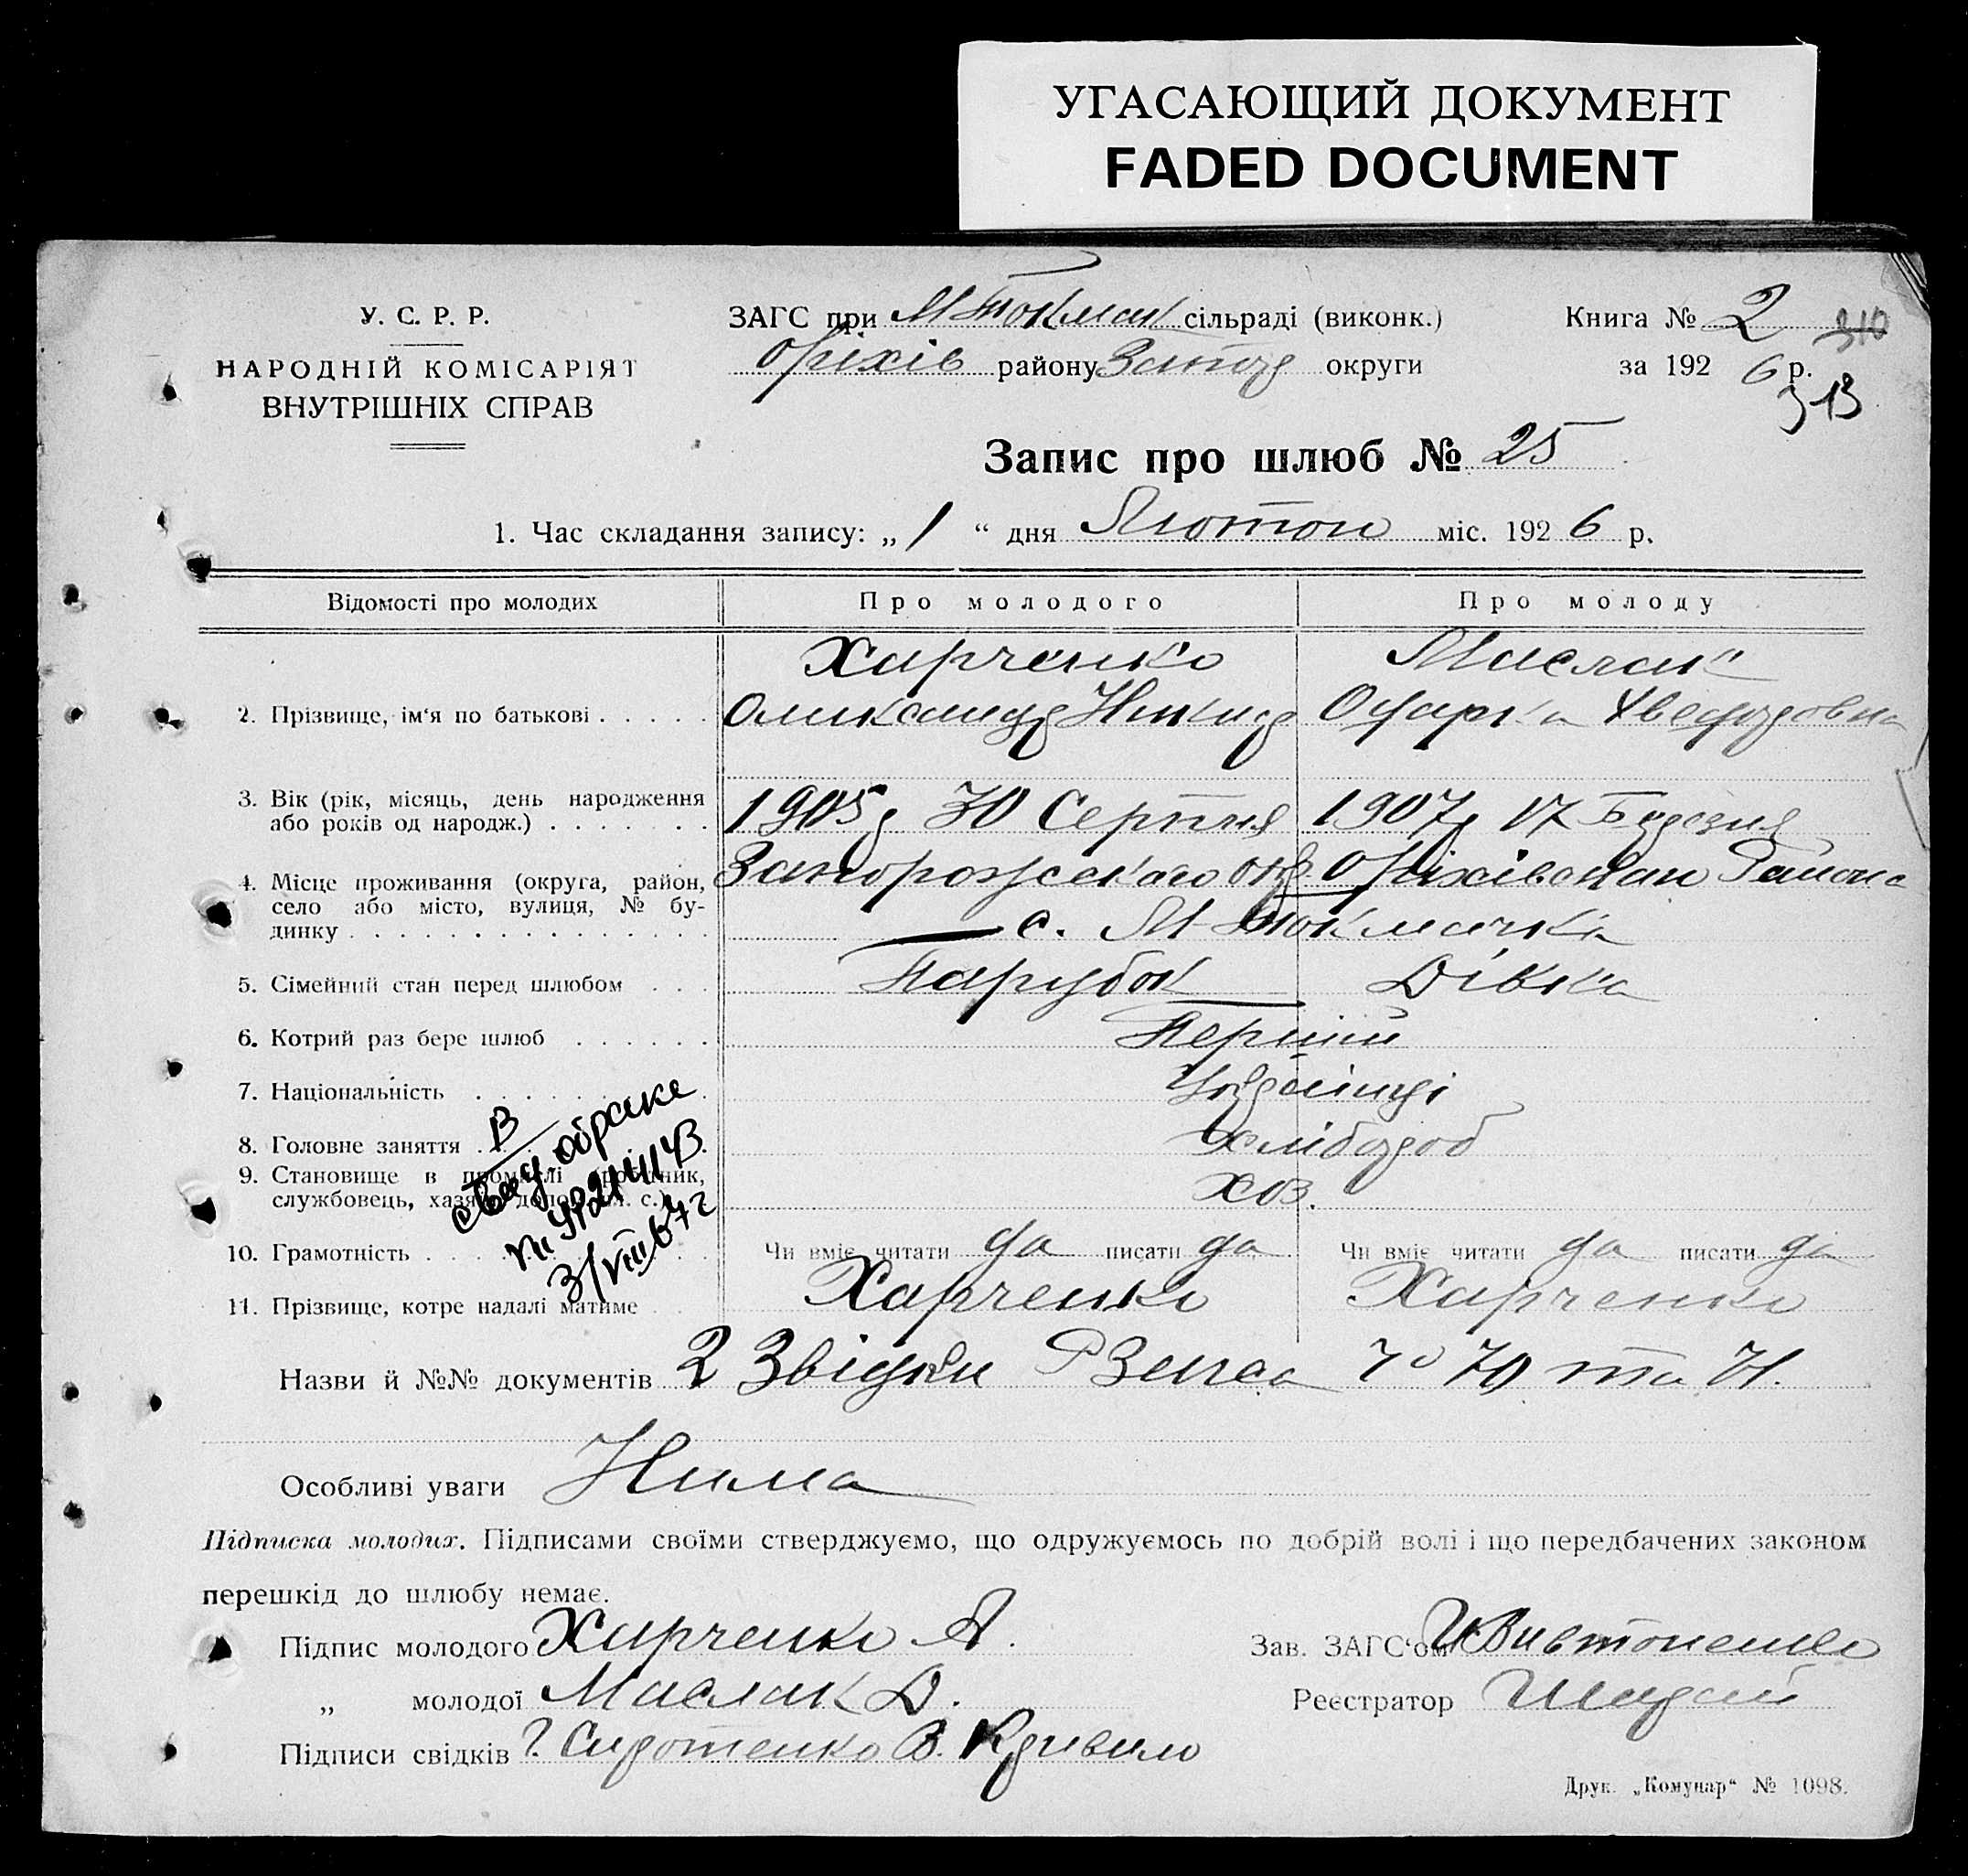 УГАСАЮЩИЙ ДОКУМЕНТ
FADED DOCUMENT
У. С. Р. Р.
НАРОДНІЙ КОМІСАРІЯТ
ВНУТРІШНІХ СПРАВ
ЗАГС при М Токмак сільраді (виконк.)
Оріхів району Запор округи
Книга № 2 310
за 192 6 р.
313
Запис про шлюб № 25
1. Час складання запису: „ 1 “ дня Лютого міс. 192 6 р.
Відомості про молодих Про молодого Про молоду
Харченко Маслак
2. Прізвище, ім‘я по батькові Олександр Никид
3. Вік (рік, місяць, день народження
або років од народж.) 1905р 30 Серпня 1907р 17 Березня
4. Місце проживання (округа, район, Запорожского окр. Оріхівского Района
село або місто, вулиця, № бу-
динку с. М-Токмачка
5. Сімейний стан перед шлюбом Парубок Дівка
6. Котрий раз бере шлюб Перший
7. Національність Українці
8. Головне заняття Хлібороб
9. Становище в промислі (робітник,
службовець, хазяїн, допом. чл. с.) Хоз.
10. Грамотність Чи вміє читати да писати да Чи вміє читати да писати да
11. Прізвище, котре надалі матиме Харченко Харченко
Назви й №№ документів 2 Звідки РЗагса 70 та 71.
Особливі уваги Нима
Підписка молодих. Підписами своїми стверджуємо, що одружуємось по добрій волі і що передбачених законом
перешкід до шлюбу немає.
Підпис молодого Харченко А. Зав. ЗАГС‘ом
„ молодої Маслак О. Реєстратор
Підписи свідків Г. Сиротенко В. Кривено
Друк. „Комунар“ № 1098.